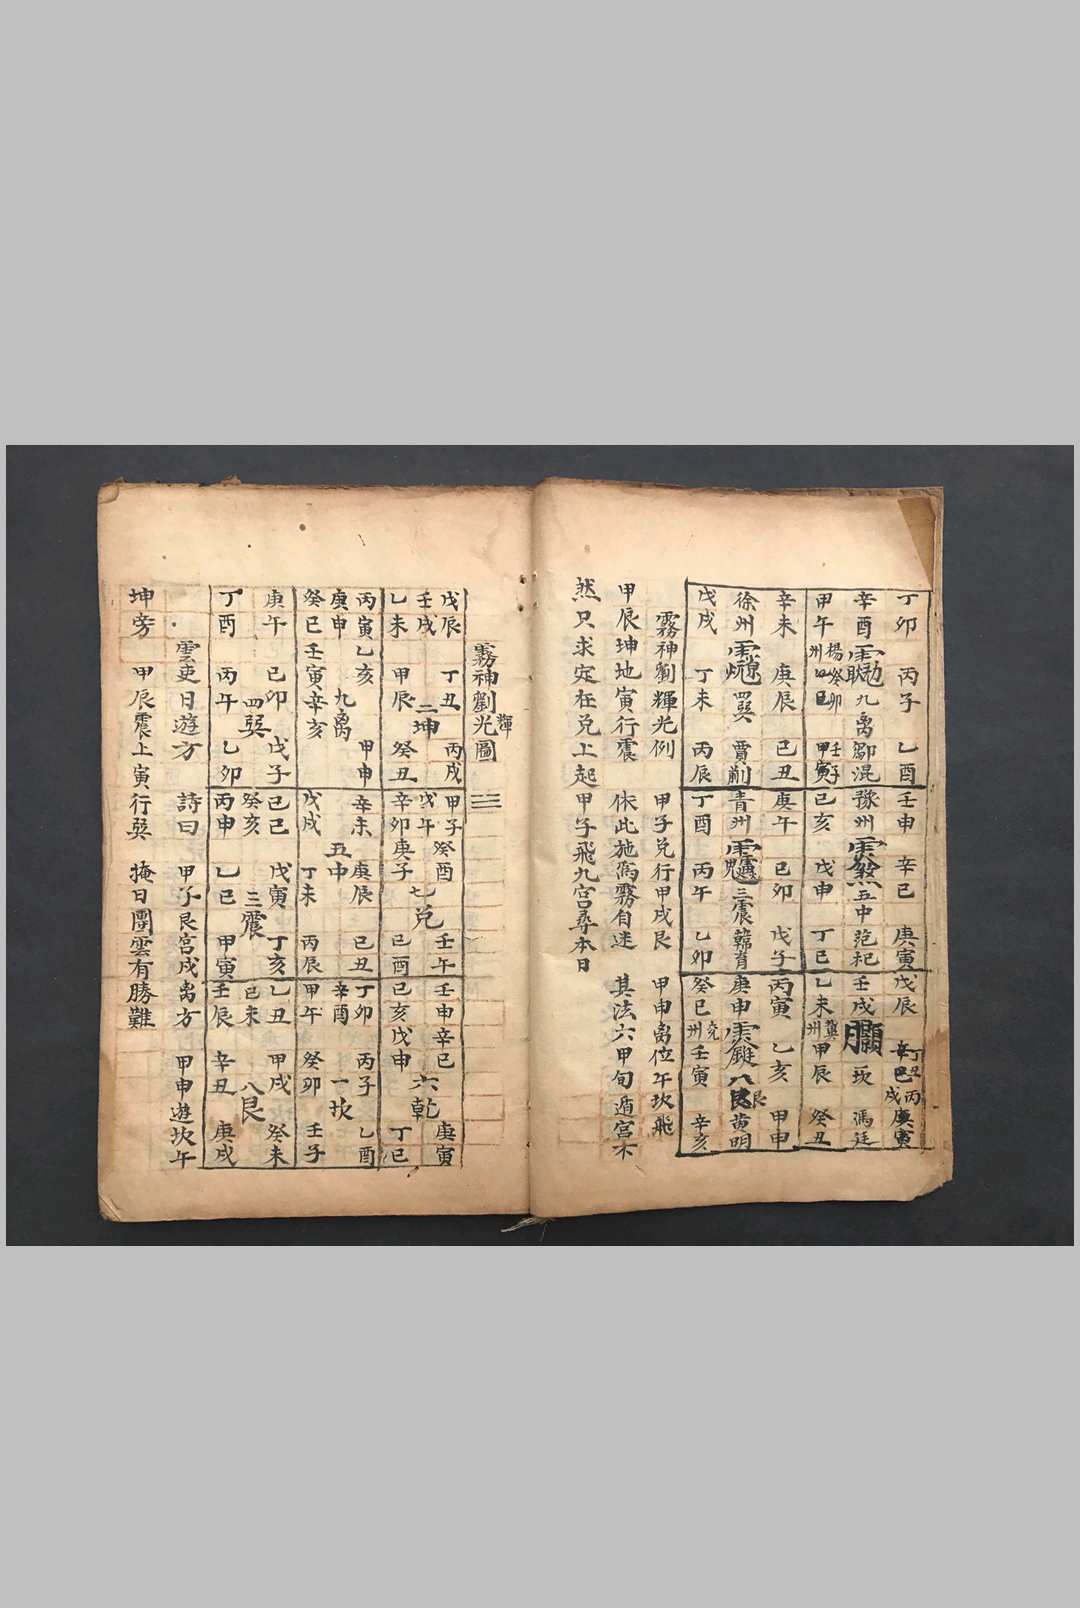 丁卯 丙子 乙酉 壬申 辛巳 庚寅 戊辰 丁丑 辛巳 丙戌 庚寅
辛酉 九离 鄒混 豫州 五中 范杞 壬戌 一坎 馮廷
甲午 楊州 癸卯 壬子 甲寅 己亥 戊申 丁巳 乙未 冀州 甲辰 癸丑
辛未 庚辰 己丑 庚午 己卯 戊子 丙寅 乙亥 甲申
徐州 四巽 賈 青州 三震 韓肖 庚申 八艮 黄明
戊戌 丁未 丙辰 丁酉 丙午 乙卯 癸巳 兖州 壬寅 辛亥
霧神劉輝光例 甲子兑行甲戌艮 甲申离位午坎飛
甲辰坤地寅行震 依此施爲霧自迷 其法六甲旬遁宫不
然只求定在兑上起甲子飛九宫尋本日
霧神劉輝光圖
戊辰 丁丑 丙戌 甲子 癸酉 壬午 壬申 辛巳 庚寅
壬戌 二坤 戊午 七兑 己亥 戊申 六乾
乙未 甲辰 癸丑 辛卯 庚子 己酉 丁巳
丙寅 乙亥 甲申 辛未 庚辰 己丑 丁卯 丙子 乙酉
庚申 九离 五中 辛酉 一坎
癸巳 壬寅 辛亥 戊戌 丁未 丙辰 甲午 癸卯 壬子
庚午 己卯 戊子 己巳 戊寅 丁亥 乙丑 甲戌 癸未
四巽 癸亥 三震 己未 八艮
丁酉 丙午 乙卯 丙申 乙巳 甲寅 壬辰 辛丑 庚戌
雲吏日遊方 詩曰 甲子艮宫戌离方 甲申遊坎午
坤旁 甲辰震上寅行巽 掩日團雲有勝難